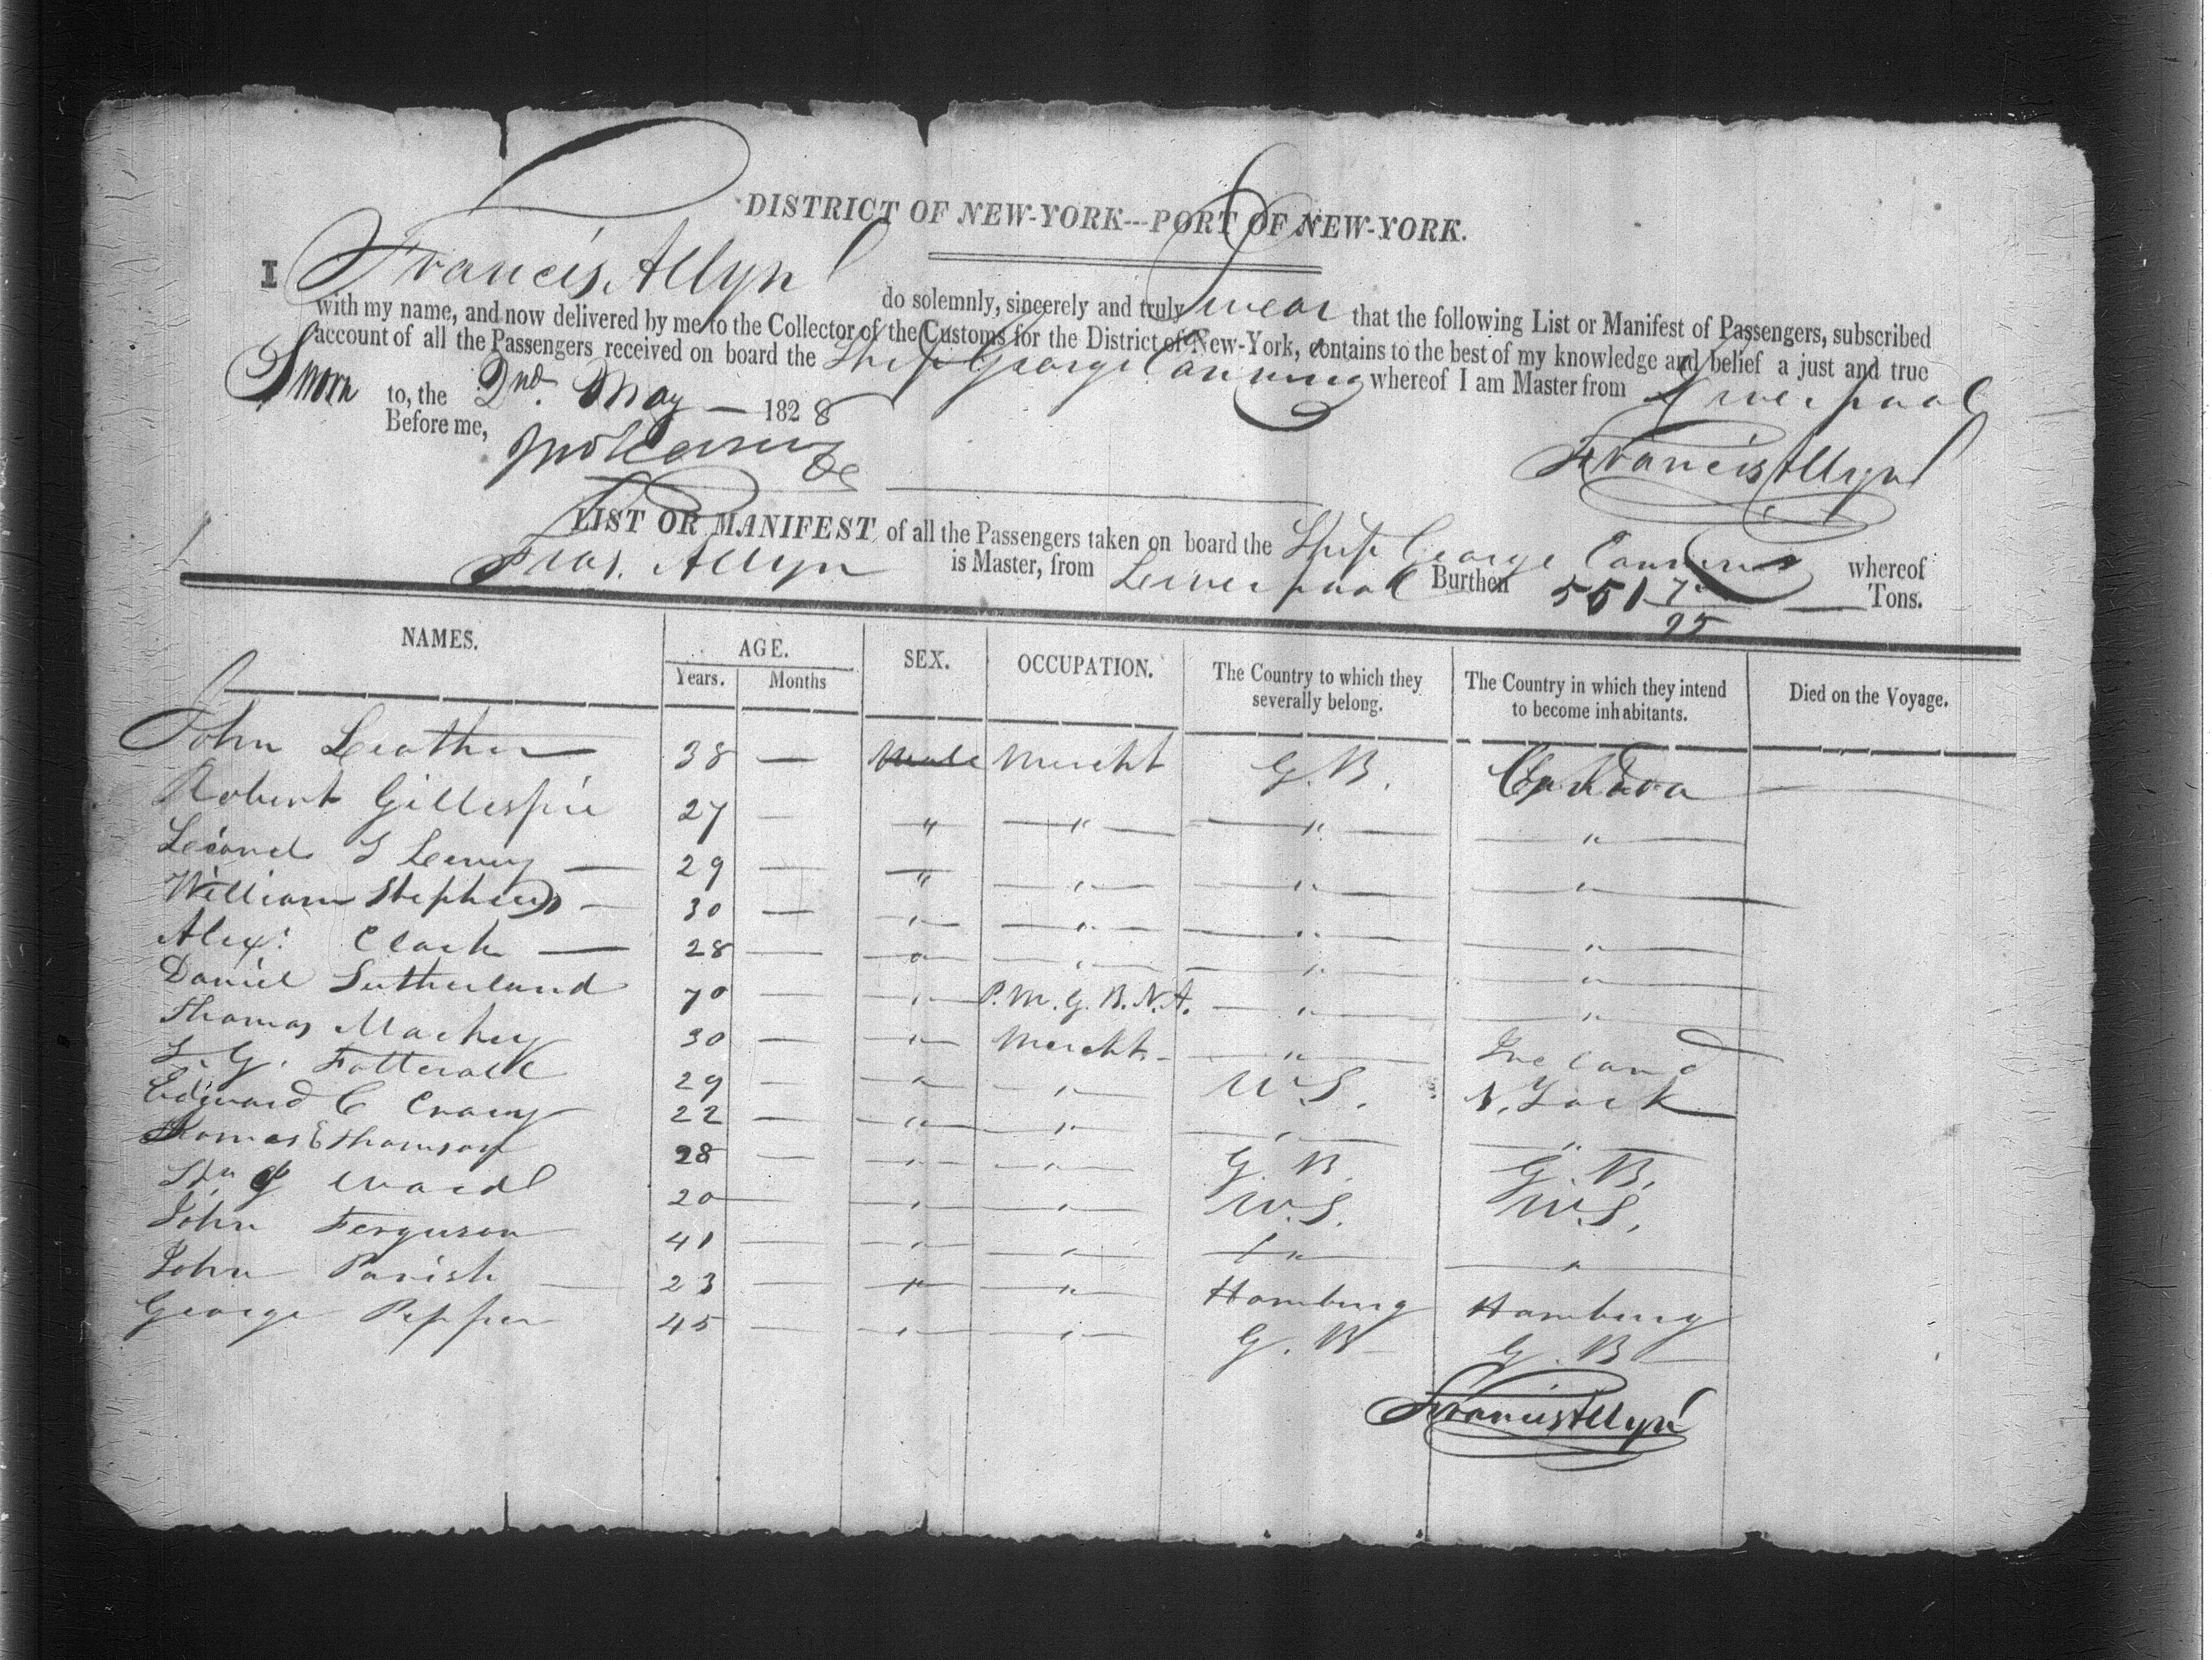 DISTRICT OF NEW-YORK---PORT OF NEW-YORK.
I Francis Allyn do solemnly, sincerely and truly Swear that the following List or Manifest of Passengers, subscribed
with my name, and now delivered by me to the Collector of the Customs for the District of New-York, contains to the best of my knowledge and belief a just and true
account of all the Passengers received on board the Ship George Canning whereof I am Master from Liverpool
Sworn to, the 2nd May — 1828
Before me,
Francis Allyn
LIST OR MANIFEST of all the Passengers taken on board the Ship George Canning whereof
Fras. Allyn is Master, from Liverpool Burthen 551 Tons.
95
NAMES. AGE. SEX. OCCUPATION. The Country to which they severally belong. The Country in which they intend to become inhabitants. Died on the Voyage.
Years. Months
John Leather 38 — Male Mercht G. B. Canada —
Robert Gillespie 27 — " " " "
29 — " " " "
William Stephens 30 — " " " "
Alexr. Clark — 28 — " " " "
Daniel Sutherland 70 — " P. M. G. B. N. A. " "
Thomas Mackey 30 — " Mercht " Ireland
Fotterall 29 — " " U S. N. York
Edward C 22 — " " " "
Thomas E Thomson 28 — " " G. B. G. B.
Ward 20 — " " U.S. U.S.
John Ferguson 41 — " " " "
John Parish 23 — " " Hamburg Hamburg
George Pepper 45 — " " G. B G. B
Francis Allyn